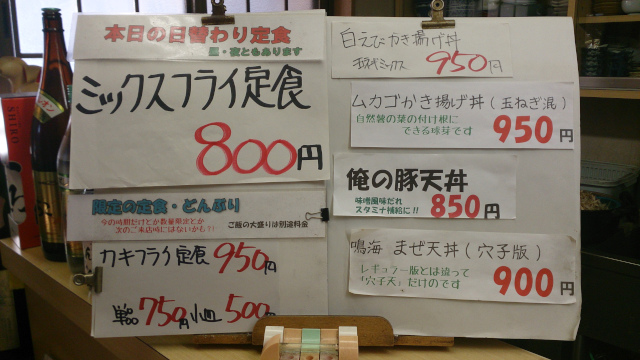 本日の日替わり定食
昼・夜ともあります
ミックスフライ定食
800円
限定の定食・どんぶり
今の時期だけとか数量限定とか
次のご来店時にはないかも!?
ご飯の大盛りは別途料金
カキフライ定食 950円
単品 750円 小皿 500円
白えびかき揚げ丼
玉ねぎミックス 950円
ムカゴかき揚げ丼(玉ねぎ混)
自然薯の葉の付け根に
できる球芽です
950円
俺の豚天丼
味噌風味だれ
スタミナ補給に!!
850円
鳴海 まぜ天丼(穴子版)
レギュラー版とは違って
「穴子天」だけのです
900円